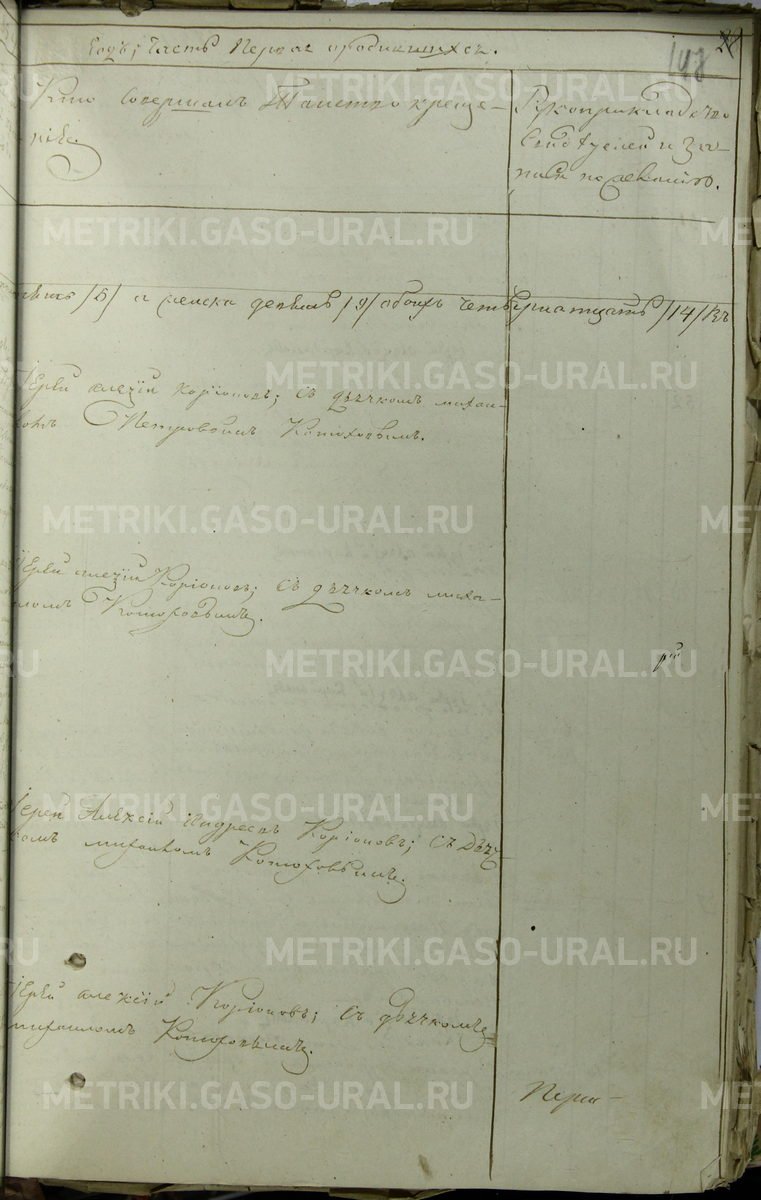 годъ, Часть Первая о родившихся.
Кто совершалъ Таинство креще-
нія
Рукоприкладство
Свидѣтелей и за-
писи по желанію.
/5/ а женска девять /9/ обоихъ четырнатцать /14/
Іерей Алеѯій Коріоновъ; съ дьячкомъ михаи-
ломъ Петровымъ Конюховымъ.
Іерей Алеѯій Коріоновъ; съ дьячкомъ миха-
иломъ Конюховымъ.
Іерей Алеѯій Андреевъ Коріоновъ; съ дьяч-
комъ михаиломъ Конюховымъ.
Іерей Алеѯій Коріоновъ; съ дьячкомъ
михаиломъ Конюховымъ.
METRIKI.GASO-URAL.RU